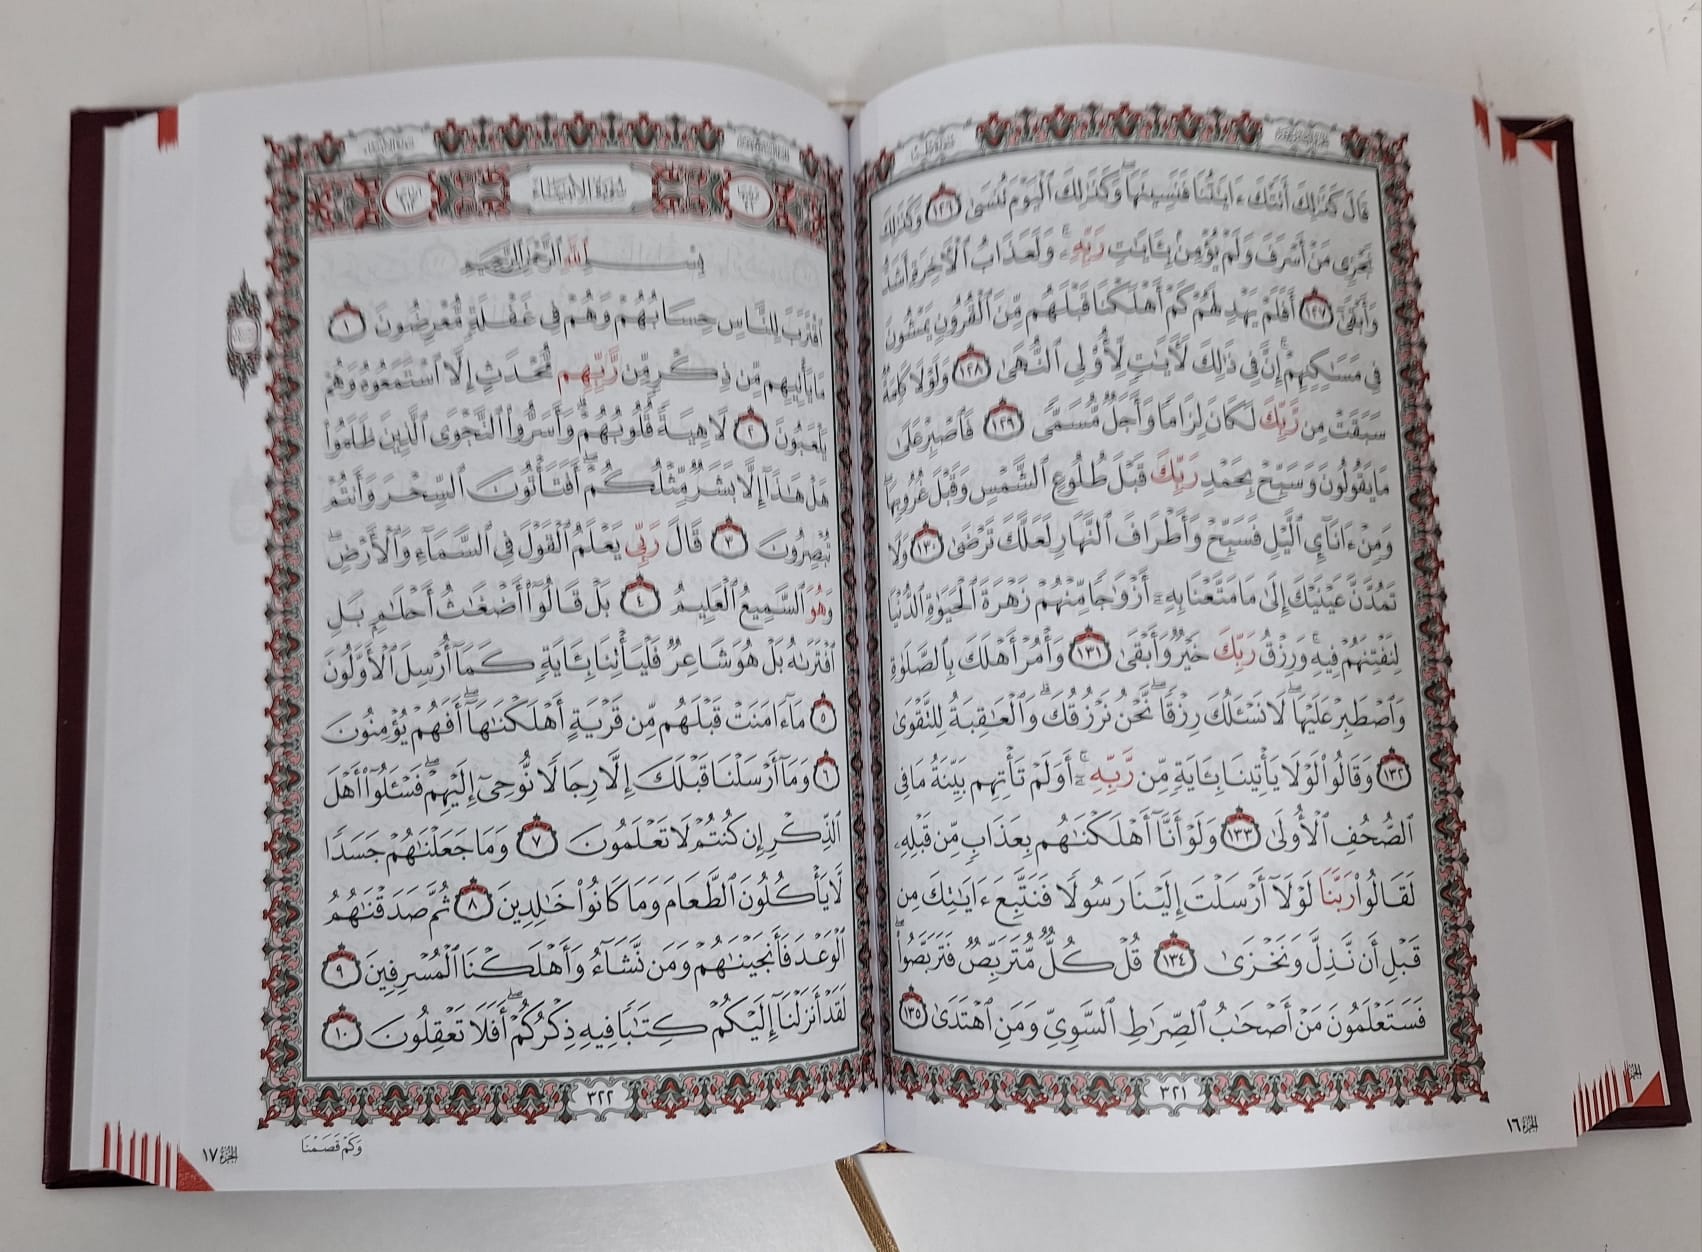 قَالَ كَذَٰلِكَ أَتَتْكَ ءَايَٰتُنَا فَنَسِيتَهَا ۖ وَكَذَٰلِكَ ٱلْيَوْمَ تُنسَىٰ ١٢٦ وَكَذَٰلِكَ
نَجْزِى مَنْ أَسْرَفَ وَلَمْ يُؤْمِنۢ بِـَٔايَٰتِ رَبِّهِۦ ۚ وَلَعَذَابُ ٱلْءَاخِرَةِ أَشَدُّ
وَأَبْقَىٰٓ ١٢٧ أَفَلَمْ يَهْدِ لَهُمْ كَمْ أَهْلَكْنَا قَبْلَهُم مِّنَ ٱلْقُرُونِ يَمْشُونَ
فِى مَسَٰكِنِهِمْ ۗ إِنَّ فِى ذَٰلِكَ لَءَايَٰتٍ لِّأُو۟لِى ٱلنُّهَىٰ ١٢٨ وَلَوْلَا كَلِمَةٌ
سَبَقَتْ مِن رَّبِّكَ لَكَانَ لِزَامًا وَأَجَلٌ مُّسَمًّى ١٢٩ فَٱصْبِرْ عَلَىٰ
مَا يَقُولُونَ وَسَبِّحْ بِحَمْدِ رَبِّكَ قَبْلَ طُلُوعِ ٱلشَّمْسِ وَقَبْلَ غُرُوبِهَا ۖ
وَمِنْ ءَانَآئِ ٱلَّيْلِ فَسَبِّحْ وَأَطْرَافَ ٱلنَّهَارِ لَعَلَّكَ تَرْضَىٰ ١٣٠ وَلَا
تَمُدَّنَّ عَيْنَيْكَ إِلَىٰ مَا مَتَّعْنَا بِهِۦٓ أَزْوَٰجًا مِّنْهُمْ زَهْرَةَ ٱلْحَيَوٰةِ ٱلدُّنْيَا
لِنَفْتِنَهُمْ فِيهِ ۚ وَرِزْقُ رَبِّكَ خَيْرٌ وَأَبْقَىٰ ١٣١ وَأْمُرْ أَهْلَكَ بِٱلصَّلَوٰةِ
وَٱصْطَبِرْ عَلَيْهَا ۖ لَا نَسْـَٔلُكَ رِزْقًا ۖ نَّحْنُ نَرْزُقُكَ ۗ وَٱلْعَٰقِبَةُ لِلتَّقْوَىٰ
١٣٢ وَقَالُوا۟ لَوْلَا يَأْتِينَا بِـَٔايَةٍ مِّن رَّبِّهِۦٓ ۚ أَوَلَمْ تَأْتِهِم بَيِّنَةُ مَا فِى
ٱلصُّحُفِ ٱلْأُولَىٰ ١٣٣ وَلَوْ أَنَّآ أَهْلَكْنَٰهُم بِعَذَابٍ مِّن قَبْلِهِۦ
لَقَالُوا۟ رَبَّنَا لَوْلَآ أَرْسَلْتَ إِلَيْنَا رَسُولًا فَنَتَّبِعَ ءَايَٰتِكَ مِن
قَبْلِ أَن نَّذِلَّ وَنَخْزَىٰ ١٣٤ قُلْ كُلٌّ مُّتَرَبِّصٌ فَتَرَبَّصُوا۟ ۖ
فَسَتَعْلَمُونَ مَنْ أَصْحَٰبُ ٱلصِّرَٰطِ ٱلسَّوِىِّ وَمَنِ ٱهْتَدَىٰ ١٣٥
٣٢١
الجزء ١٦
سُورَةُ الأَنبِيَاءِ
بِسْمِ ٱللَّهِ ٱلرَّحْمَٰنِ ٱلرَّحِيمِ
ٱقْتَرَبَ لِلنَّاسِ حِسَابُهُمْ وَهُمْ فِى غَفْلَةٍ مُّعْرِضُونَ ١
مَا يَأْتِيهِم مِّن ذِكْرٍ مِّن رَّبِّهِم مُّحْدَثٍ إِلَّا ٱسْتَمَعُوهُ وَهُمْ
يَلْعَبُونَ ٢ لَاهِيَةً قُلُوبُهُمْ ۗ وَأَسَرُّوا۟ ٱلنَّجْوَى ٱلَّذِينَ ظَلَمُوا۟
هَلْ هَٰذَآ إِلَّا بَشَرٌ مِّثْلُكُمْ ۖ أَفَتَأْتُونَ ٱلسِّحْرَ وَأَنتُمْ
تُبْصِرُونَ ٣ قَالَ رَبِّى يَعْلَمُ ٱلْقَوْلَ فِى ٱلسَّمَآءِ وَٱلْأَرْضِ ۖ
وَهُوَ ٱلسَّمِيعُ ٱلْعَلِيمُ ٤ بَلْ قَالُوٓا۟ أَضْغَٰثُ أَحْلَٰمٍۭ بَلِ
ٱفْتَرَىٰهُ بَلْ هُوَ شَاعِرٌ فَلْيَأْتِنَا بِـَٔايَةٍ كَمَآ أُرْسِلَ ٱلْأَوَّلُونَ
٥ مَآ ءَامَنَتْ قَبْلَهُم مِّن قَرْيَةٍ أَهْلَكْنَٰهَآ ۖ أَفَهُمْ يُؤْمِنُونَ
٦ وَمَآ أَرْسَلْنَا قَبْلَكَ إِلَّا رِجَالًا نُّوحِىٓ إِلَيْهِمْ ۖ فَسْـَٔلُوٓا۟ أَهْلَ
ٱلذِّكْرِ إِن كُنتُمْ لَا تَعْلَمُونَ ٧ وَمَا جَعَلْنَٰهُمْ جَسَدًا
لَّا يَأْكُلُونَ ٱلطَّعَامَ وَمَا كَانُوا۟ خَٰلِدِينَ ٨ ثُمَّ صَدَقْنَٰهُمُ
ٱلْوَعْدَ فَأَنجَيْنَٰهُمْ وَمَن نَّشَآءُ وَأَهْلَكْنَا ٱلْمُسْرِفِينَ ٩
لَقَدْ أَنزَلْنَآ إِلَيْكُمْ كِتَٰبًا فِيهِ ذِكْرُكُمْ ۖ أَفَلَا تَعْقِلُونَ ١٠
٣٢٢
وَكَمْ قَصَمْنَا
الجزء ١٧